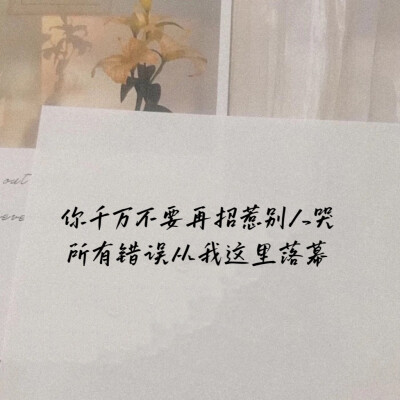 out
eve
你千万不要再招惹别人哭
所有错误从我这里落幕